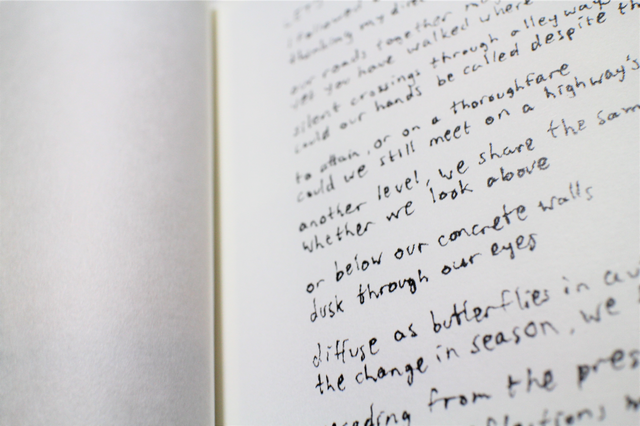 thinking my
our roads together
yet you have walked where
silent crossings through alleyway
could our hands be called despite th
to attain, or on a thoroughfare
could we still meet on a highway's
another level, we share the sam
whether we look above
or below our concrete walls
dusk through our eyes
diffuse as butterflies in
the change in season, we
from the pres